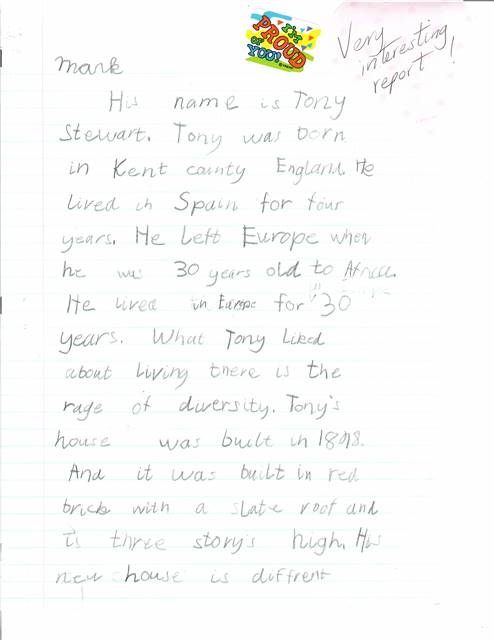 I'M
PROUD
OF
YOU!
Very
interesting
report!
Mark
His name is Tony
Stewart. Tony was born
in Kent county England. He
lived in Spain for four
years. He Left Europe when
he was 30 years old to Africa.
He lived in Europe for 30
years. What Tony Liked
about Living there is the
rage of diversity. Tony's
house was built in 1898.
And it was built in red
brick with a slate roof and
is three story's high. His
new house is diffrent